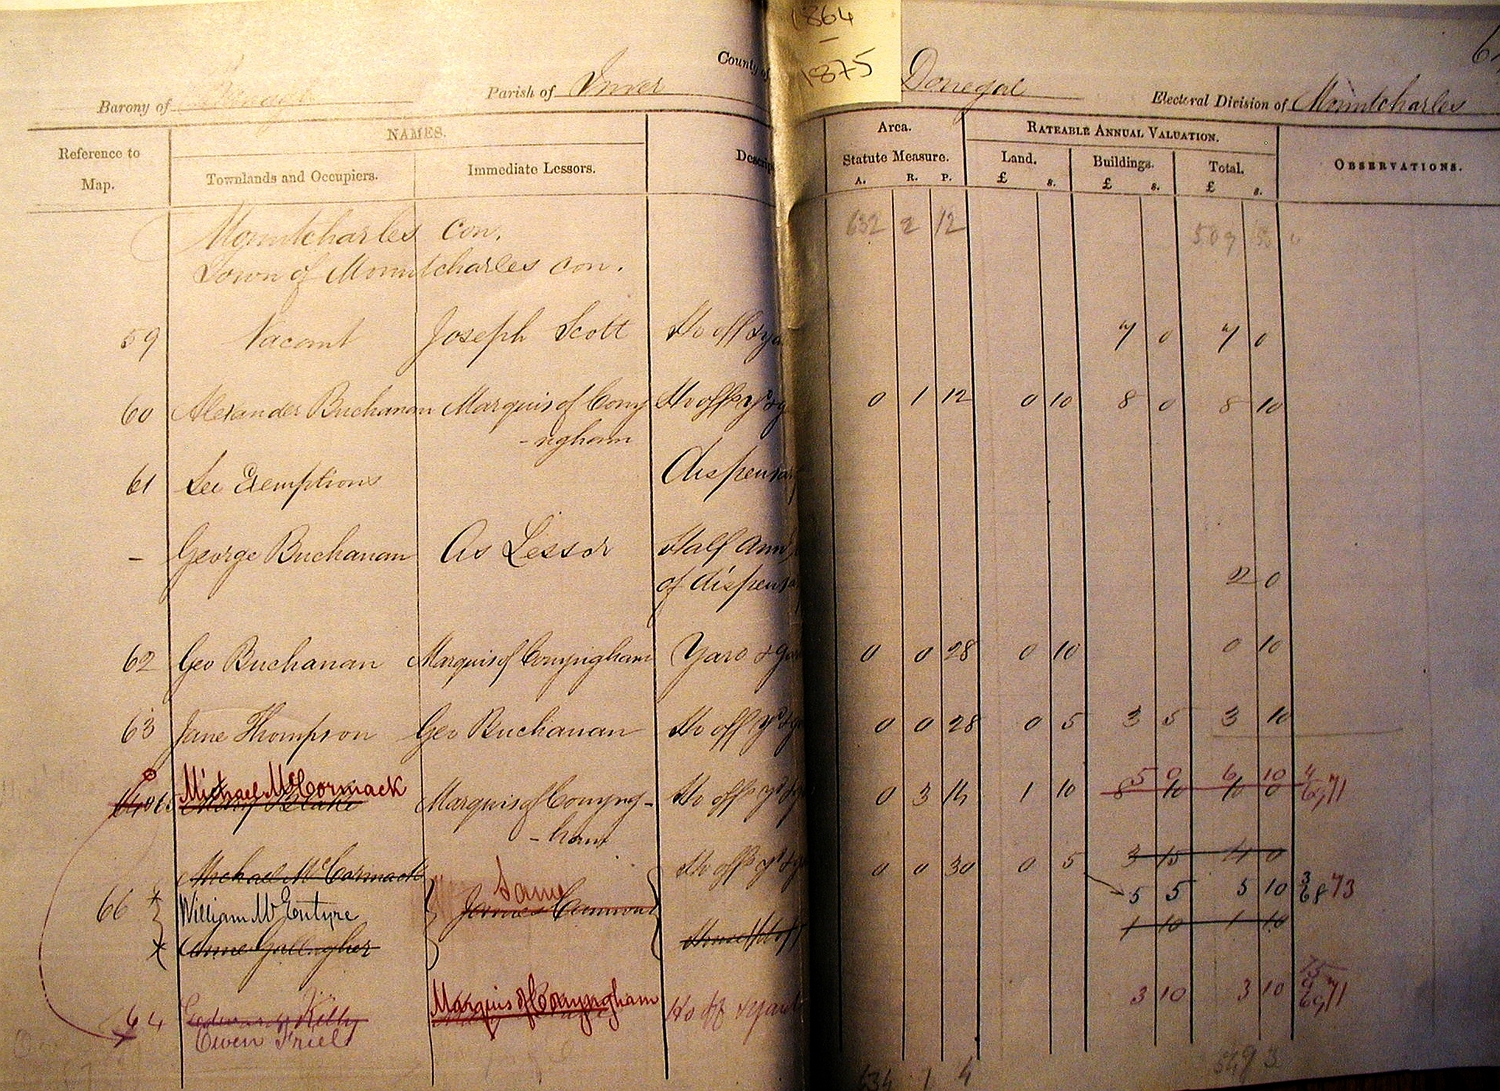 1864
—
1875
Barony of Parish of Inver County of Donegal Electoral Division of Mountcharles
Reference to Map. NAMES. Area. RATEABLE ANNUAL VALUATION. OBSERVATIONS.
Townlands and Occupiers. Immediate Lessors. Statute Measure. Land. Buildings. Total.
A. R. P. £ s. £ s. £ s.
Mountcharles Con. 632 2 12
Town of Mountcharles con.
59 Vacant Joseph Scott Ho off & 7 0 7 0
60 Alexander Buchanan Marquis of Cony Ho offs yd & g 0 1 12 0 10 8 0 8 10
-ngham
61 See Exemptions Dispensa
– George Buchanan As Lessor Half Ann
of dispens 2 0
62 Geo Buchanan Marquis of Conyngham Yard & ga 0 0 28 0 10 0 10
63 Jane Thompson Geo Buchanan Ho off yd & g 0 0 28 0 5 3 5 3 10
Michael McCormack 5 0 6 10
Marquis of Conyng- Ho offs yd & g 0 3 14 1 10 8 10 10 0 71
-ham
Michael McCormack Ho offs yd & g 0 0 30 0 5 3 15 4 0
66 William McEntyre Same 5 5 5 10 73
Anne Gallagher 1 10 1 10
64 Edward Kelly Marquis of Conyngham Ho off & yard 3 10 3 10 71
Owen Friel
634 1 4